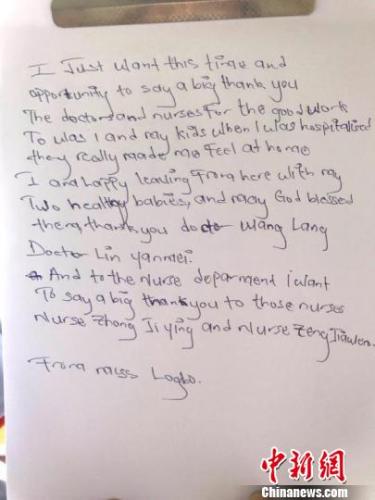 I Just want this time and
opportunity to say a big thank you
The doctors and nurses for the good work
To was I and my kids when I was hospitalised
they really made me feel at home
I am happy leaving from here with my
Two healthy babies, and may God blessed
them, thank you doctor Wang Lang
Doctor Lin yanmei.
And to the Nurse deparment i want
To say a big thank you to those nurses
Nurse Zhong Ji ying and Nurse Zeng Jiawen.
From miss Logbo.
中新网
Chinanews.com